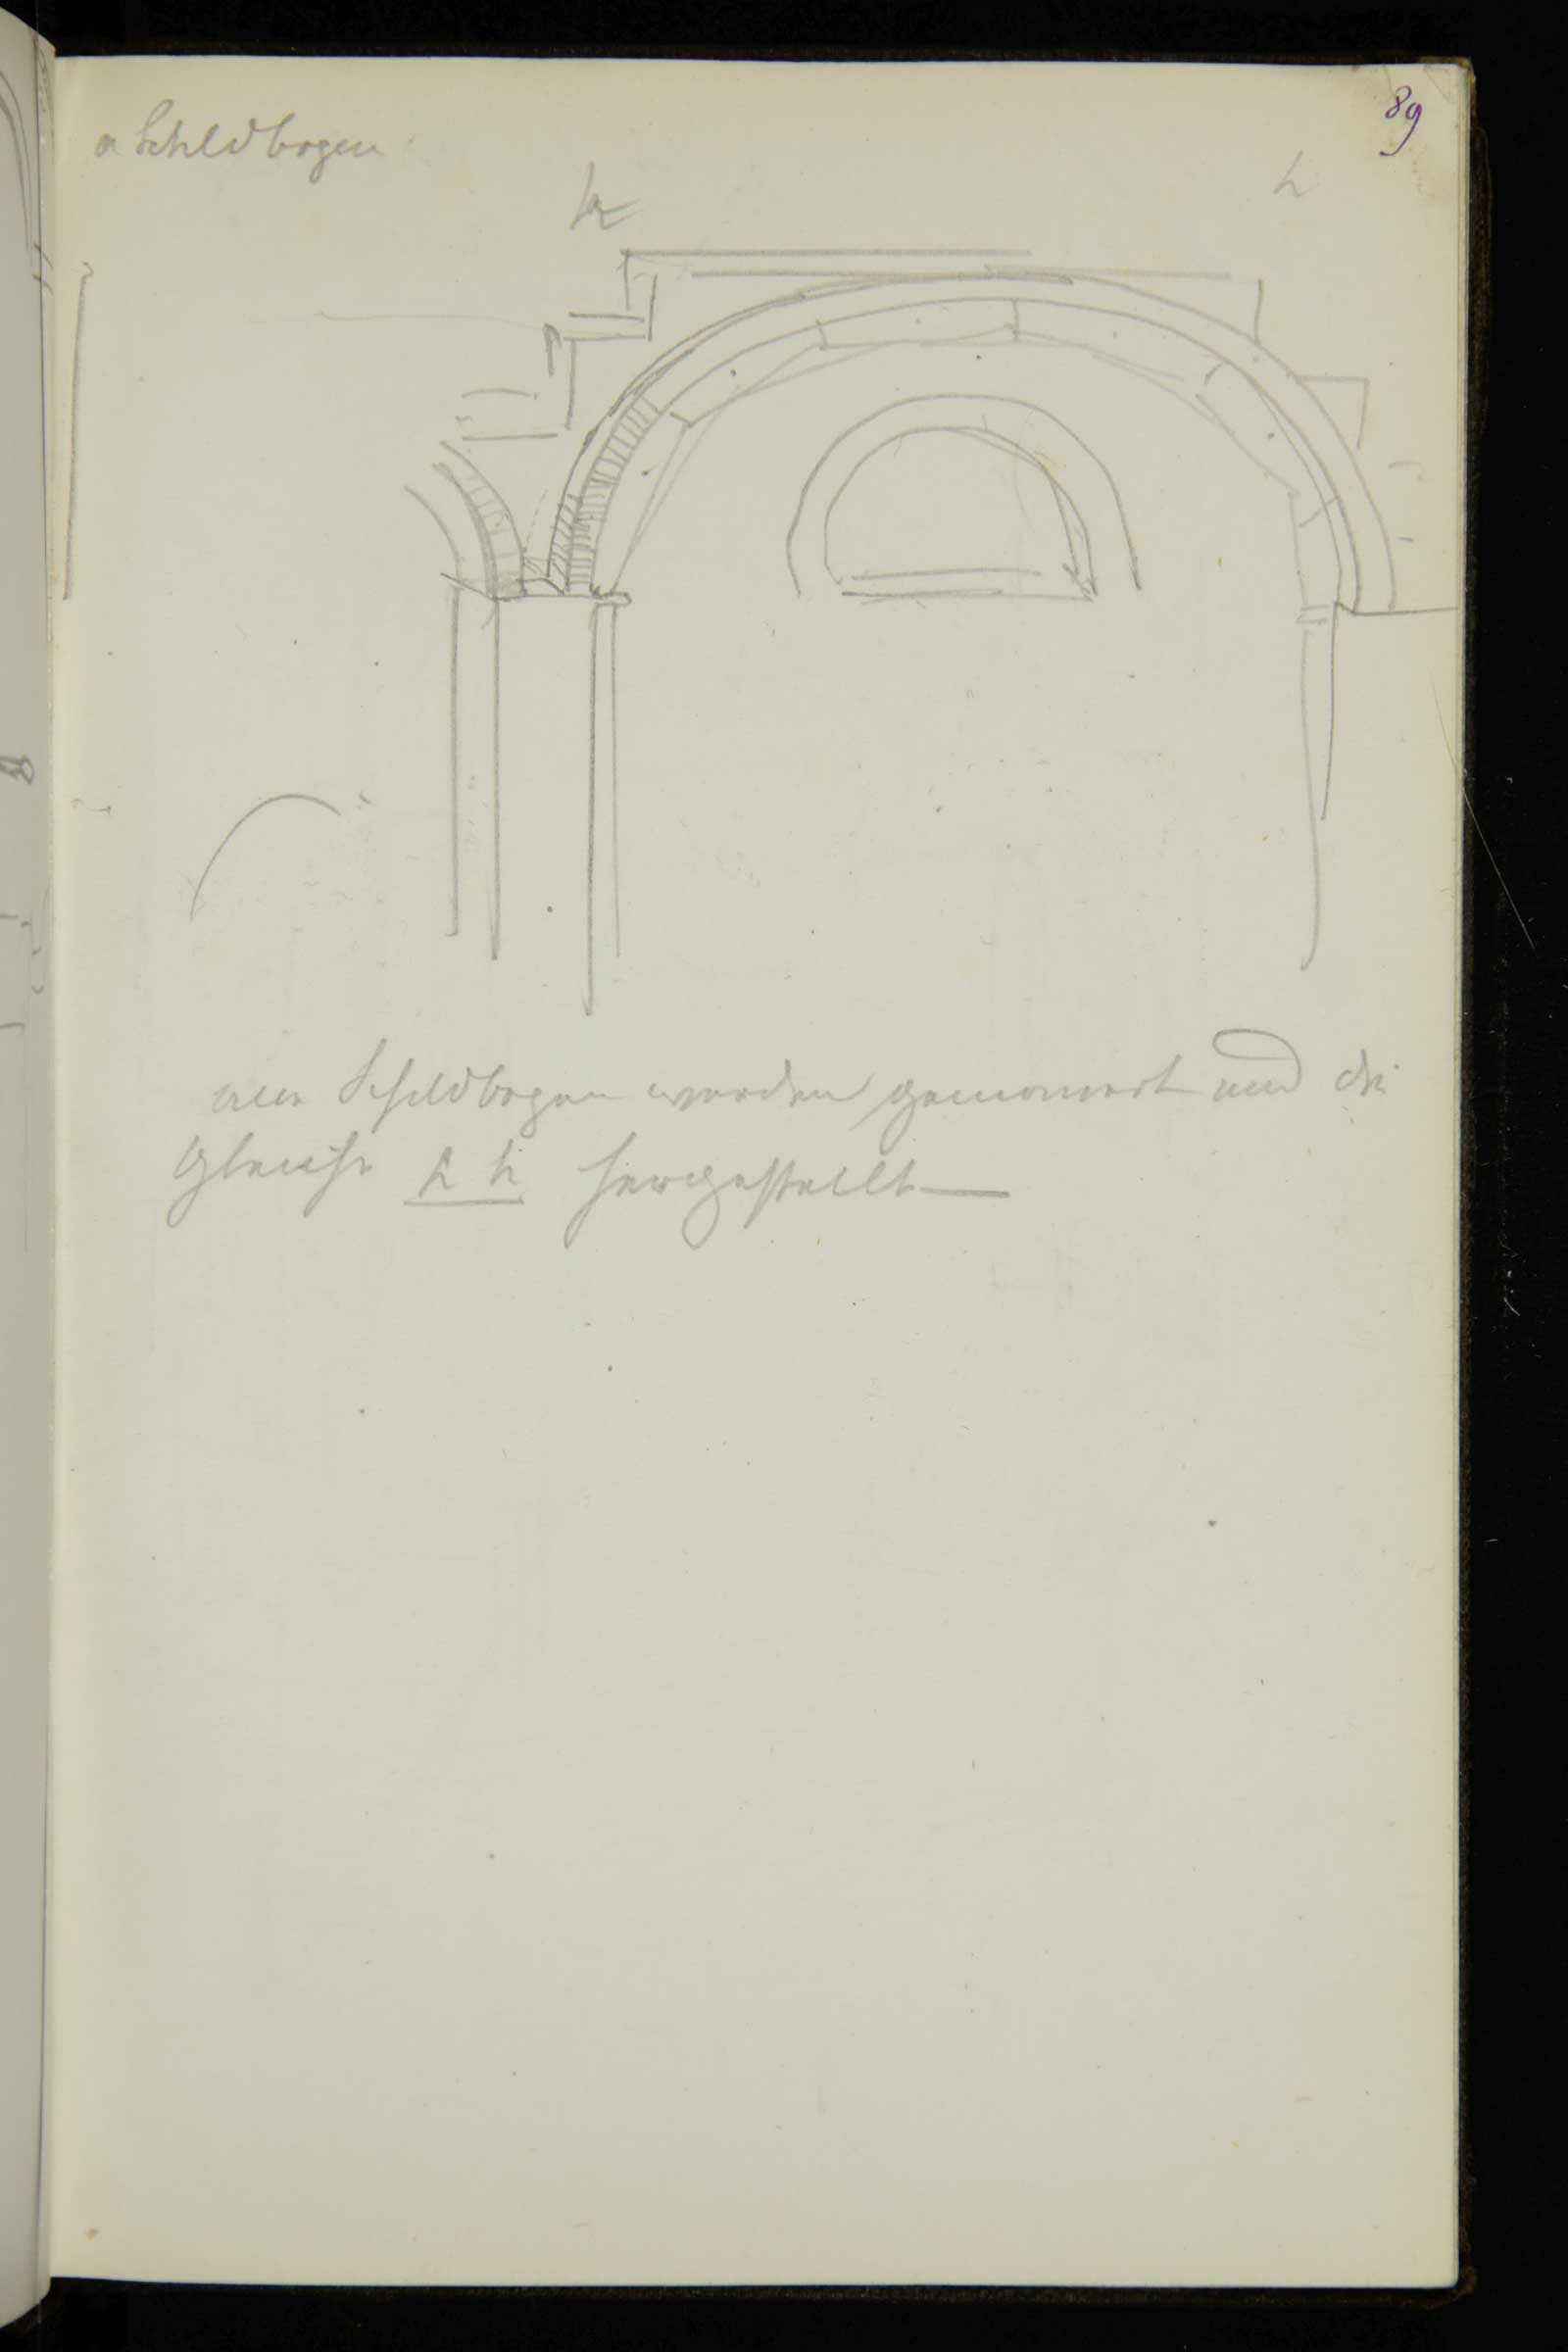 89
a Schldbogen
h
h
alle Schildbogen werden gemauert und die
Gleiche h h hergestellt —